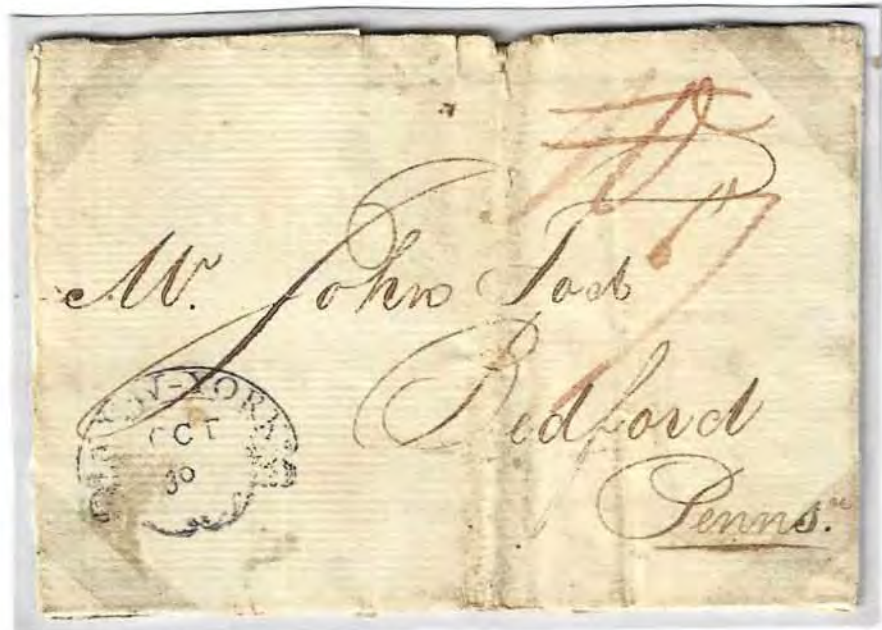 Mr. John Tod
Bedford
Penns.
NEW-YORK
OCT
30